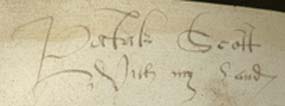 Patrik Scott
With my hand